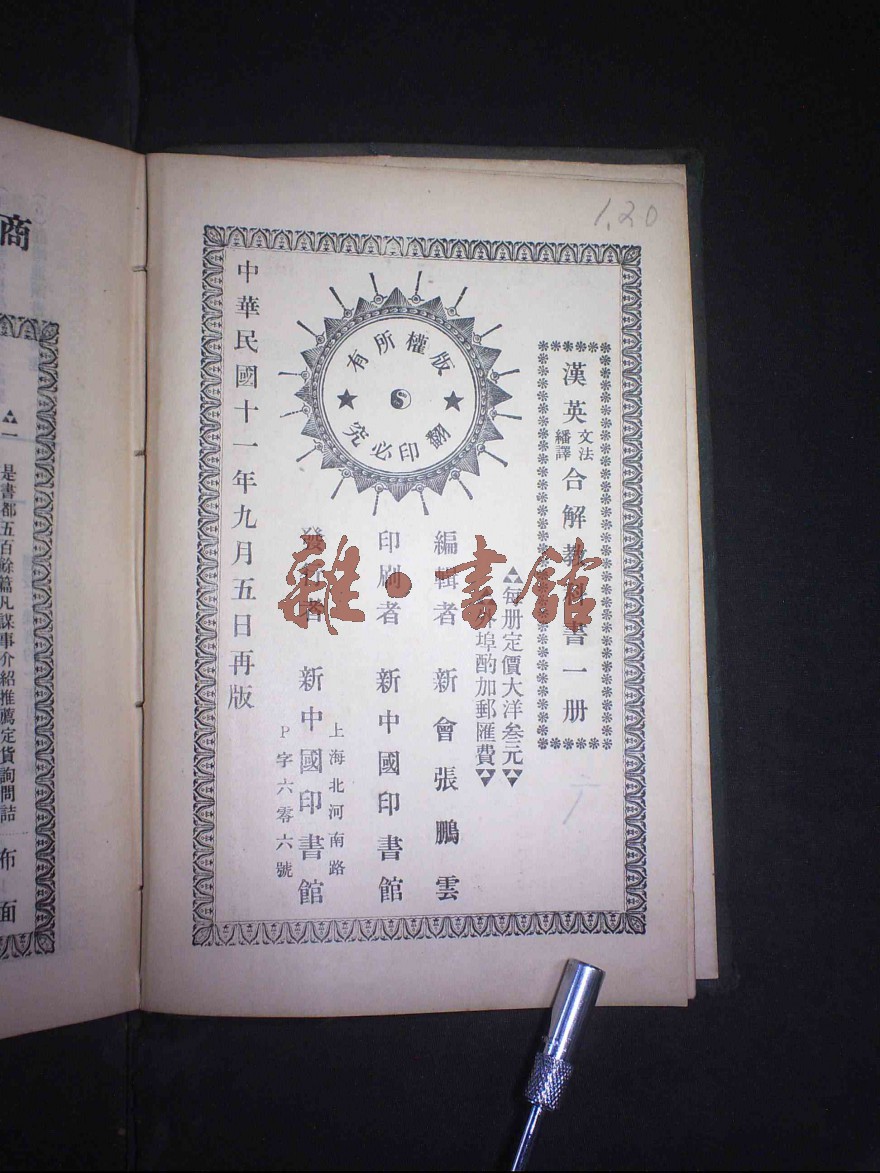 1.20
漢英文法繙譯合解教科書一册
每册定價大洋叁元
外埠酌加郵匯費
編輯者 新會張鵬雲
印刷者 新中國印書館
上海北河南路
發行者 新中國印書館
P字六零六號
版權所有
翻印必究
中華民國十一年九月五日再版
雜·書館
商
一 是書都五百餘篇凡謀事介紹推薦定貨詢問詰
布面